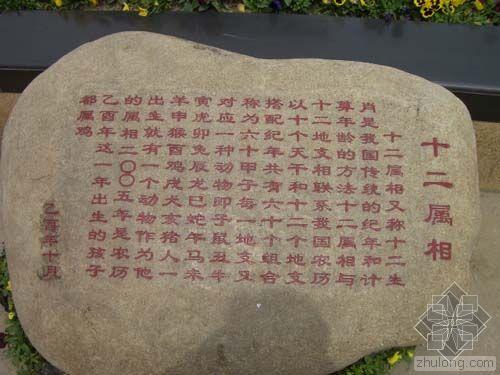 十二属相
十二属相又称十二生
肖是我国传统的纪年和计
算年龄的方法十二属相与
十二地支相联系我国农历
以十个天干和十二个地支
搭配纪年共有六十个组合
称为六十甲子每一地支又
对应一种动物即子鼠丑牛
寅虎卯兔辰龙巳蛇午马未
羊申猴酉鸡戌犬亥猪人一
出生就有一个动物作为他
的属相二〇〇五年是农历
乙酉年这一年出生的孩子
都属鸡
乙酉年十月
筑龙网
zhulong.com